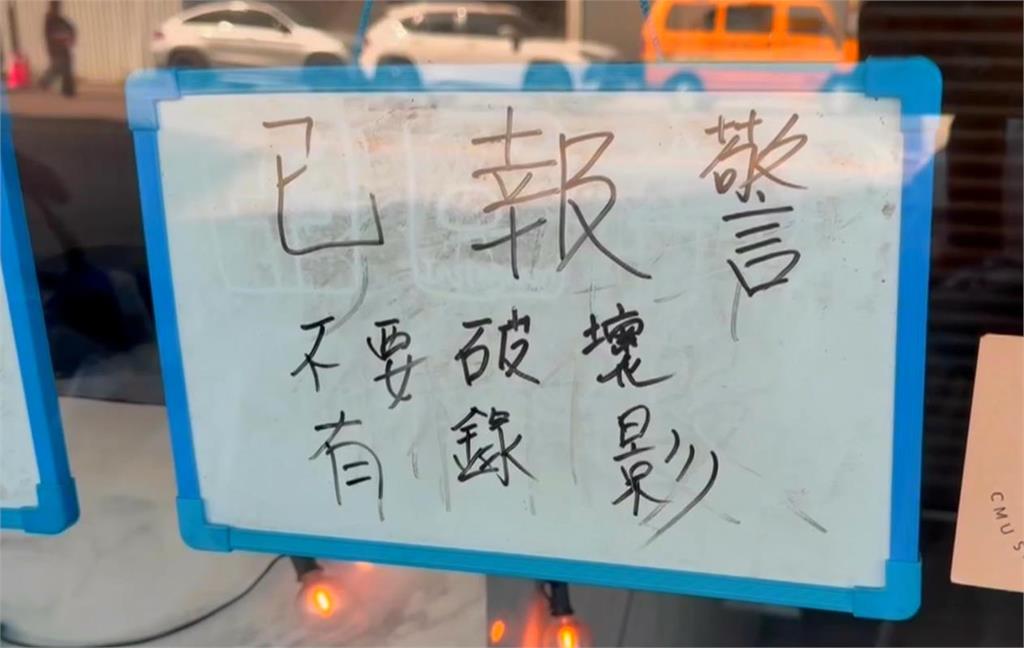 已報警
不要破壞
有錄影
CMU S